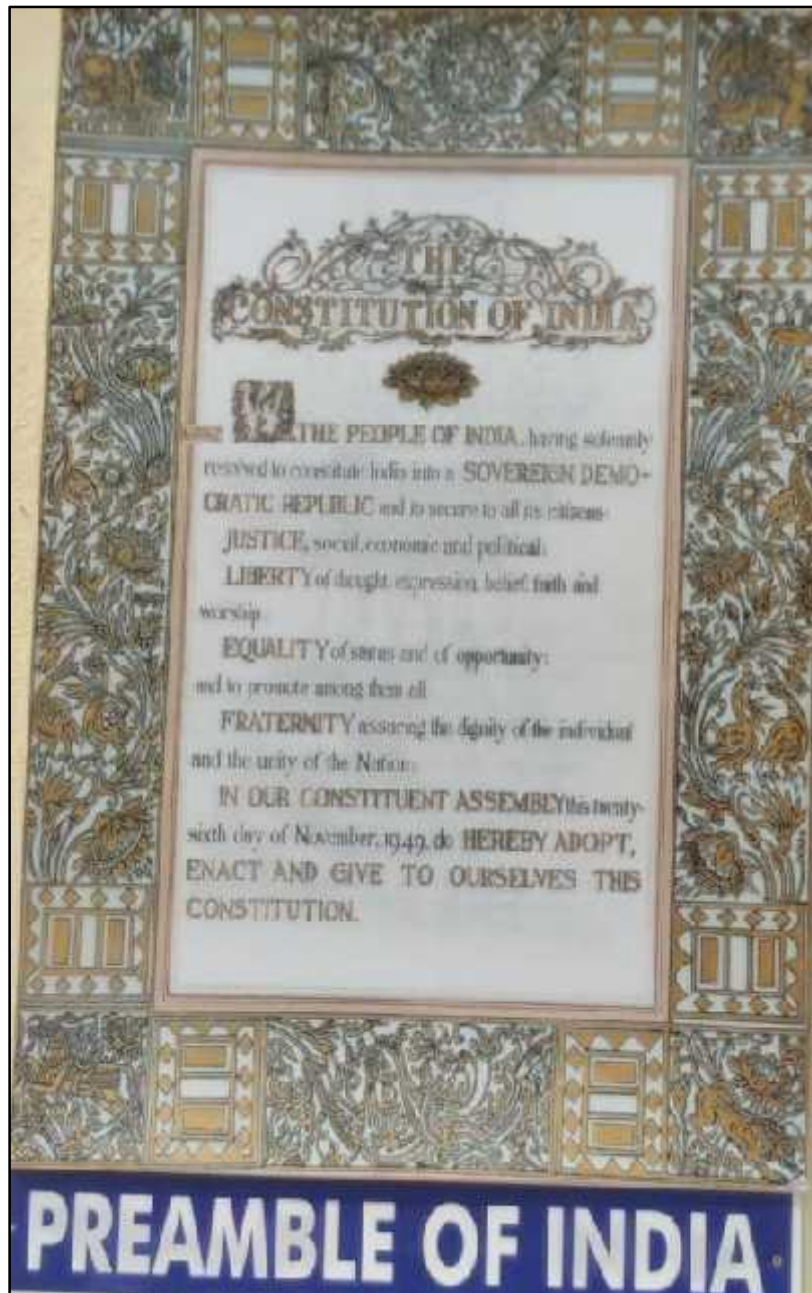 THE
CONSTITUTION OF INDIA
WE, THE PEOPLE OF INDIA, having solemnly
resolved to constitute India into a SOVEREIGN DEMO-
CRATIC REPUBLIC and to secure to all its citizens:
JUSTICE, social, economic and political;
LIBERTY of thought, expression, belief, faith and
worship;
EQUALITY of status and of opportunity;
and to promote among them all
FRATERNITY assuring the dignity of the individual
and the unity of the Nation;
IN OUR CONSTITUENT ASSEMBLY this twenty-
sixth day of November, 1949, do HEREBY ADOPT,
ENACT AND GIVE TO OURSELVES THIS
CONSTITUTION.
PREAMBLE OF INDIA